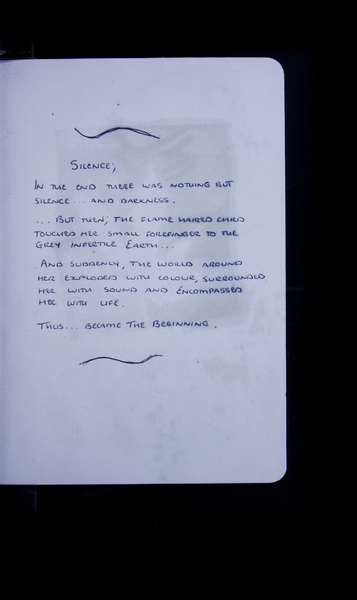 Silence;
In the end there was nothing but
silence ... and darkness.
... But then; the flame haired child
touched her small forefinger to the
grey infertile Earth ...
And suddenly, the world around
her exploded with colour, surrounded
her with sound and encompassed
her with life.
Thus ... became the Beginning.